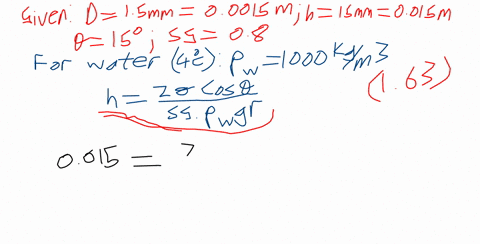 Given: D = 1.5mm = 0.0015m; h = 15mm = 0.015m
θ = 15°; SG = 0.8
For water (4°C): ρw = 1000 kg/m3
(1.63)
h = 2σ cosθ / SG. ρw gr
0.015 = 2